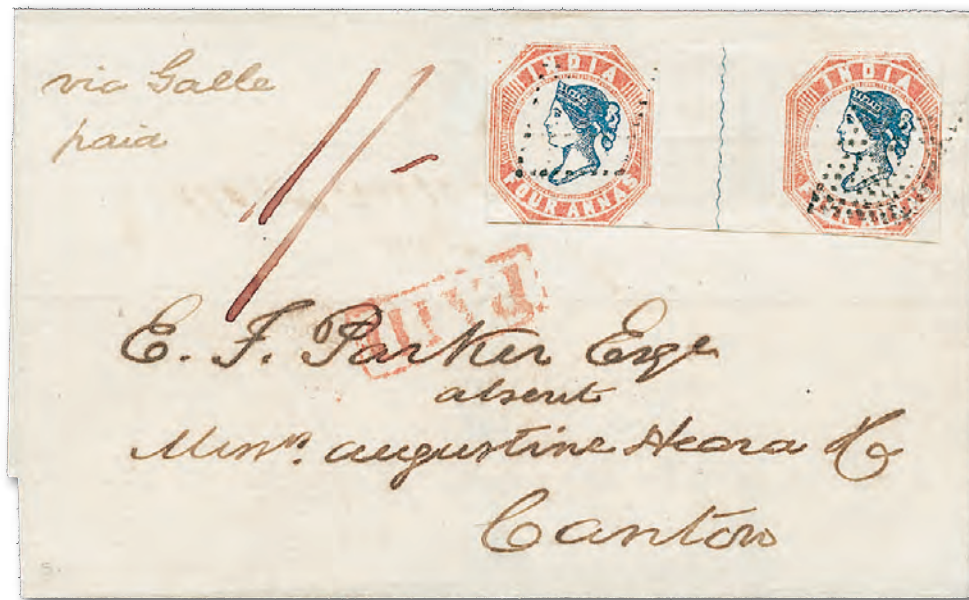 via Galle
paid
1/-
INDIA
FOUR ANNAS
INDIA
FOUR ANNAS
PAID
E. F. Parker Esqe
absent
Messrs. Augustine Heard & Co
Canton
5.